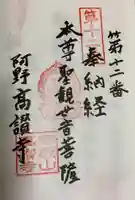 第十二番
奉納経
本尊聖観世音菩薩
阿野高讃寺